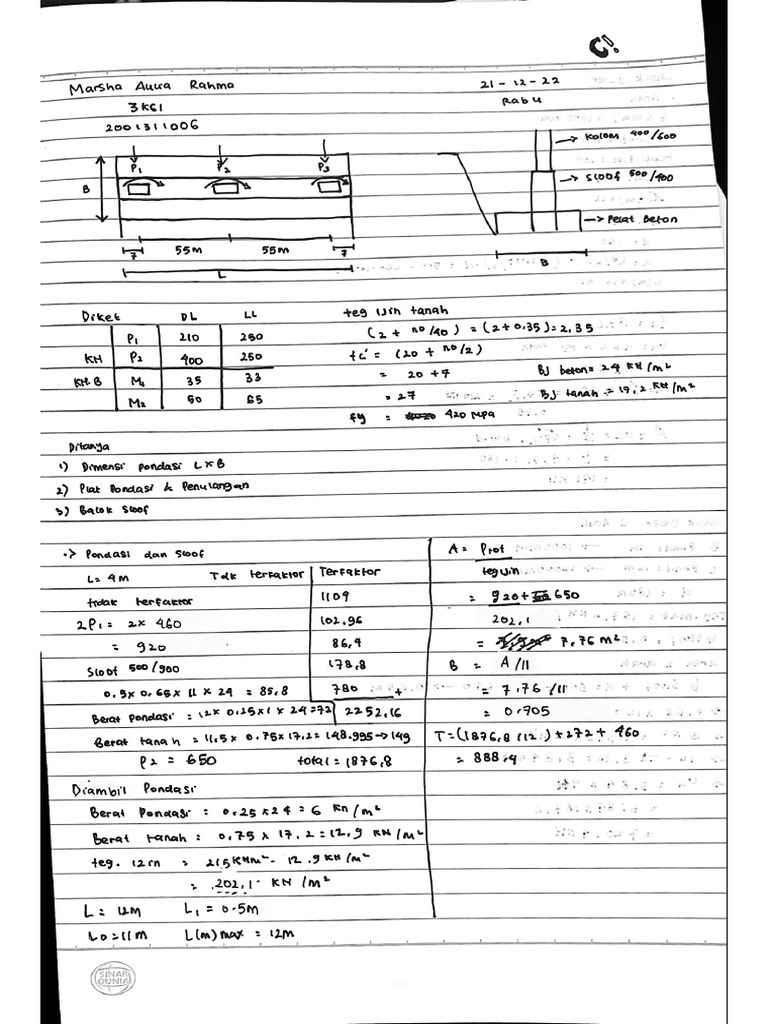 C!
Marsha Aura Rahma
21-12-22
3KG1
Rabu
2001311006
Kolom 400/600
P1 P2 P3
Sloof 500/900
B
Pelat Beton
7 55m 55m 7
B
L
Diket DL LL
teg ijin tanah
P1 210 250
(2 + no/40) = (2+0.35) = 2,35
KN P2 400 250
fc' = (20 + no/2)
= 20+7
BJ beton = 24 KN/m²
KN.B M1 35 33
= 27
BJ tanah = 17.2 KN/m²
M2 50 65
fy = 420 Mpa
Ditanya
1) Dimensi pondasi L×B
2) Plat Pondasi & Penulangan
3) Balok Sloof
-> Pondasi dan Sloof
L= 4m Tdk terfaktor Terfaktor
tidak terfaktor 1109
2P1 = 2× 460 102,96
= 920 86,4
Sloof 500/900 178,8
0.5× 0.65× 11 × 24 = 85,8 780 +
Berat Pondasi = 12× 0.25×1× 24=72 2252,16
Berat tanah = 11,5× 0.75×17,2=148.995→149
P2 = 650 total = 1876,8
A = Ptot
teg ijin
= 920+ 650
202,1
= 7.76 m²
B = A/11
= 7.76/11
= 0.705
T=(1876,8/12)+272+ 460
= 888,4
Diambil Pondasi
Berat Pondasi = 0.25×24 = 6 Kn/m²
Berat tanah = 0.75 × 17,2 = 12,9 KN/m²
teg. izin = 215KNm² - 12.9KN/m²
= 202,1 KN/m²
L = 12m L1 = 0.5m
Lo=11m L(m) max = 12m
SINAR
DUNIA